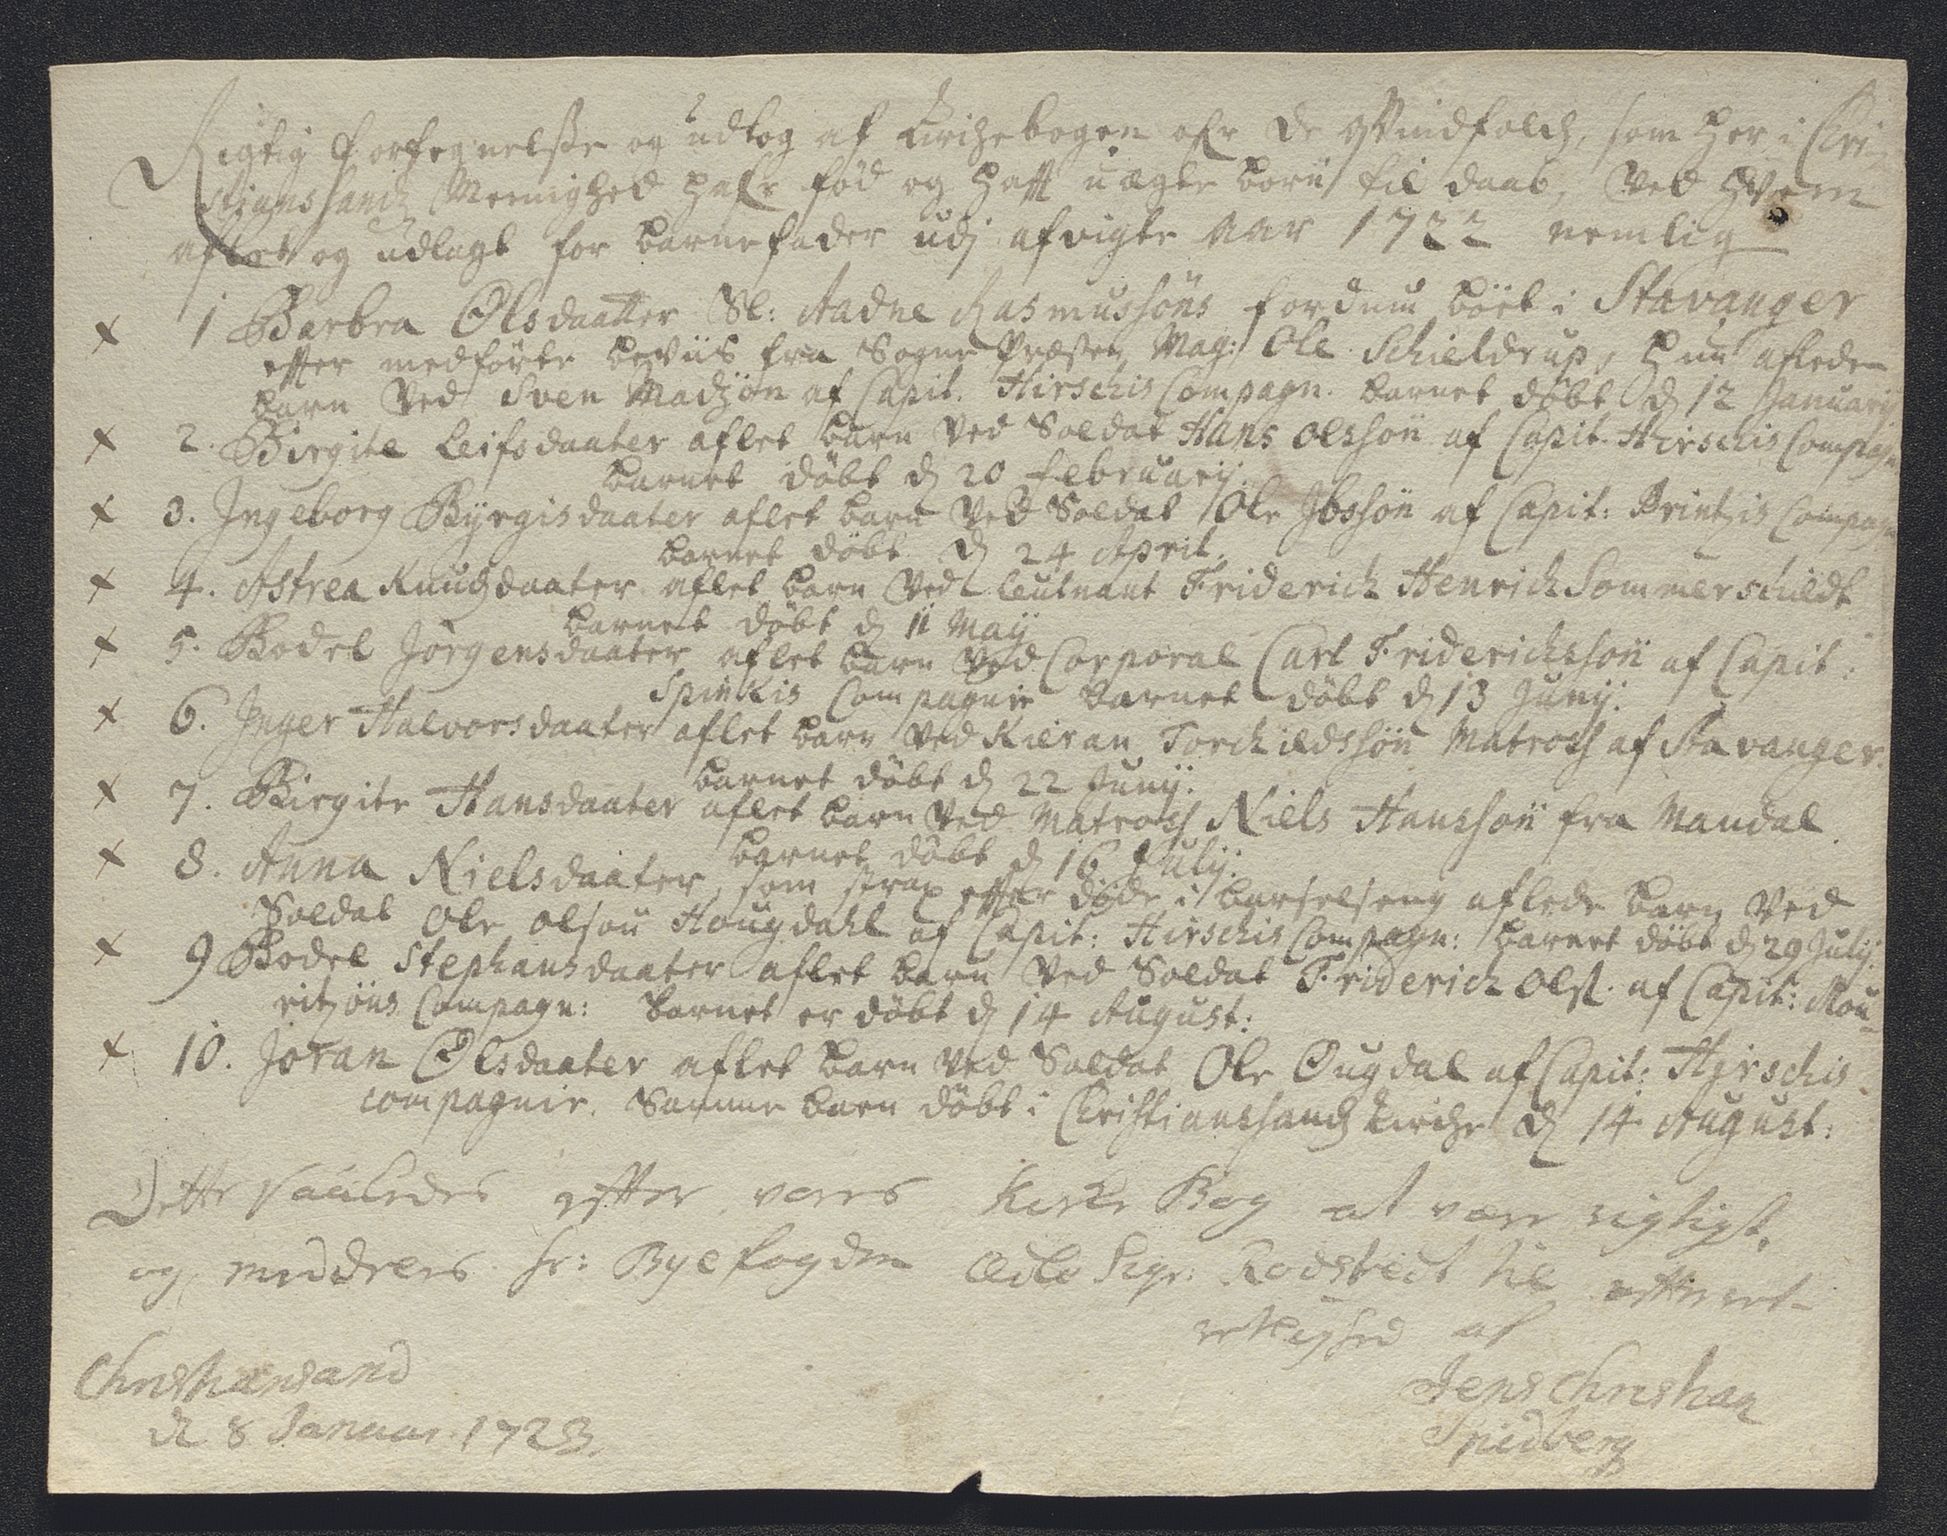 Rigtig Forteegnelsse og udtog af Kirchebogen ofr de Qvindfolch, som her i Chri-
stianssandz Meenighed hafr fød og hafft uægte børn til daab, Ved hvem
aflet og udlagt for barnefader udj afvigte Aar 1722 nemlig
1 Barbra Olsdaatter Sl: Aadne Rasmussøns fordum böet i Stavanger
efter medførte beviis fra Sogne Præsten Mag: Ole Schieldrup, hun aflede
barn Ved Sven Madzøn af Capit. Hirschis Compagn. barnet döbt d 12 Januarij
2. Birgite Leifsdaater aflet barn Ved Soldat Hans Olssøn af Capit. Hirschis Compagn
barnet döbt d 20 Februarij.
3. Ingeborg Byrgisdaater aflet barn Ved Soldat Ole Ibssøn af Capit: Brintzis Compagn
barnet döbt d 24 April.
4. Astrea Knudsdaater aflet barn Ved Leutnant Friderich Henrich Sommerschildt
barnet döbt d 11 Maij
5. Bodel Jörgensdaater aflet barn Ved Corporal Carl Friderichssøn af Capit:
Spinkis Compagnie barnet döbt d 13 Junij.
6. Inger Halvorsdaater aflet barn Ved Kieran Torchildssøn Matross af Stavanger.
barnet döbt d 22 Junij.
7. Birgite Hansdaater aflet barn Ved Matross Niels Hanssøn fra Mandal
barnet döbt d 16 Julij.
8. Anna Nielsdaater, som strax efter döde i barselseng aflede barn Ved
Soldat Ole Olsøn Hougdahl af Capit: Hirschis Compagn: barnet döbt d 29 Julij.
9 Bodel Stephansdaater aflet barn Ved Soldat Friderich Ols. af Capit: Mou-
ritzøns Compagn: barnet er döbt d 14 August:
10. Joran Olsdaater aflet barn Ved Soldat Ole Ougdal af Capit: Hirschis
compagnie. Samme barn döbt i Christianssands Kirche d 14 August:
Dette saaledes efter vores Kirke Bog at være rigtigt,
og meddeles hr: Byefogden Rodsteed til efterret-
rettlighed af
Christiansand
d 8 Januar 1723.
Jens Christian
Spidberg